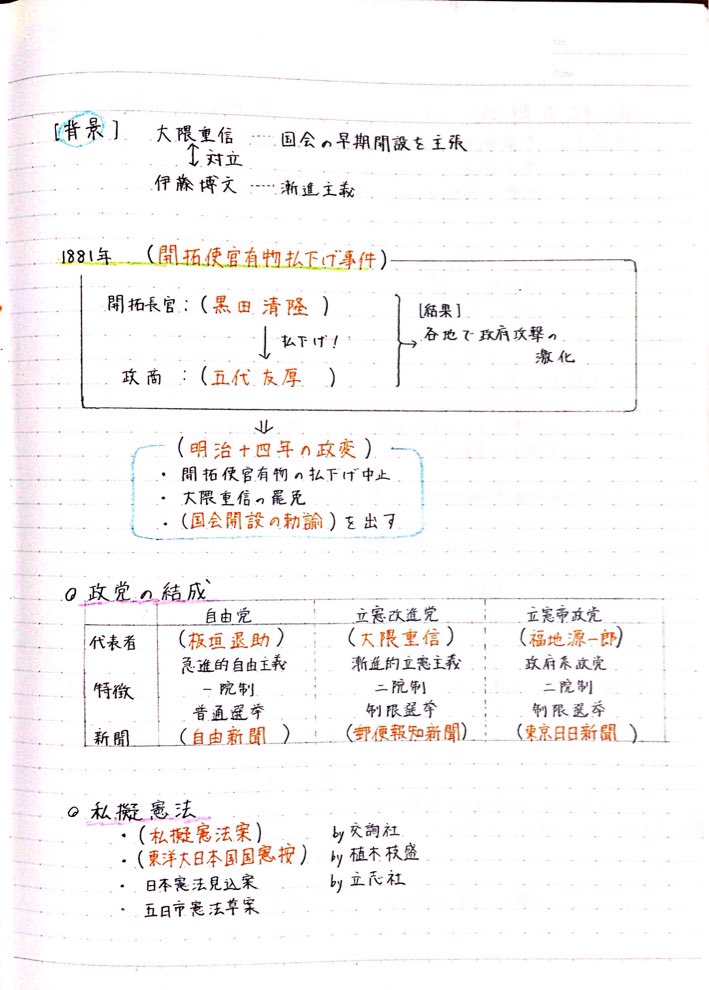 [背景]　大隈重信 ---- 国会の早期開設を主張
↕ 対立
伊藤博文 ---- 漸進主義
1881年　(開拓使官有物払下げ事件)
開拓長官：(黒田清隆　)
↓ 払下げ！
政商　：(五代友厚　)
[結果]
→各地で政府攻撃の
激化
⇓
(明治十四年の政変)
・開拓使官有物の払下げ中止
・大隈重信の罷免
・(国会開設の勅諭)を出す
政党の結成
自由党　立憲改進党　立憲帝政党
代表者　(板垣退助)　(大隈重信)　(福地源一郎)
急進的自由主義　漸進的立憲主義　政府系政党
特徴　一院制　二院制　二院制
普通選挙　制限選挙　制限選挙
新聞　(自由新聞　)　(郵便報知新聞)　(東京日日新聞　)
私擬憲法
・(私擬憲法案)　by 交詢社
・(東洋大日本国国憲按)　by 植木枝盛
・日本憲法見込案　by 立志社
・五日市憲法草案